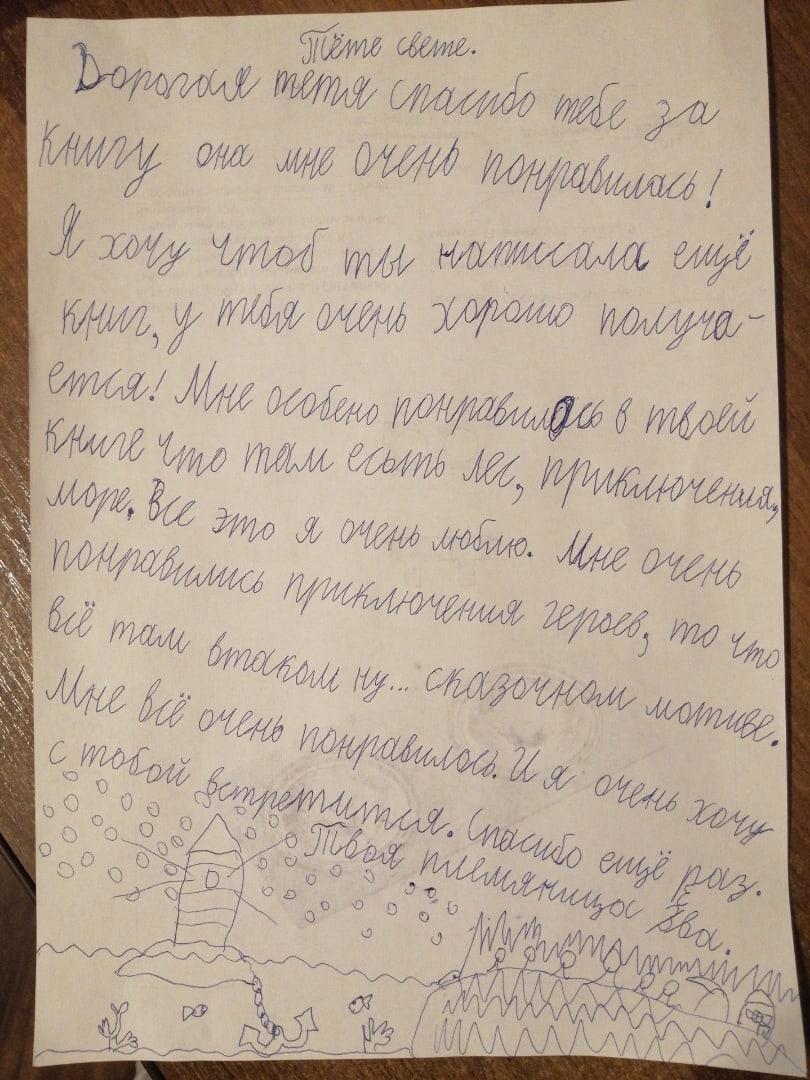 Тёте свете.
Дорогая тетя спасибо тебе за
книгу она мне очень понравилась!
Я хочу чтоб ты написала ещё
книг, у тебя очень хорошо получа-
ется! Мне особено понравилось в твоей
книге что там есыть лес, приключения,
море. Все это я очень люблю. Мне очень
понравились приключения героев, то что
всё там втаком ну... сказочном мотиве.
Мне всё очень понравилось. И я очень хочу
с тобой встретится. Спасибо ещё раз.
Твоя племяница Ева.